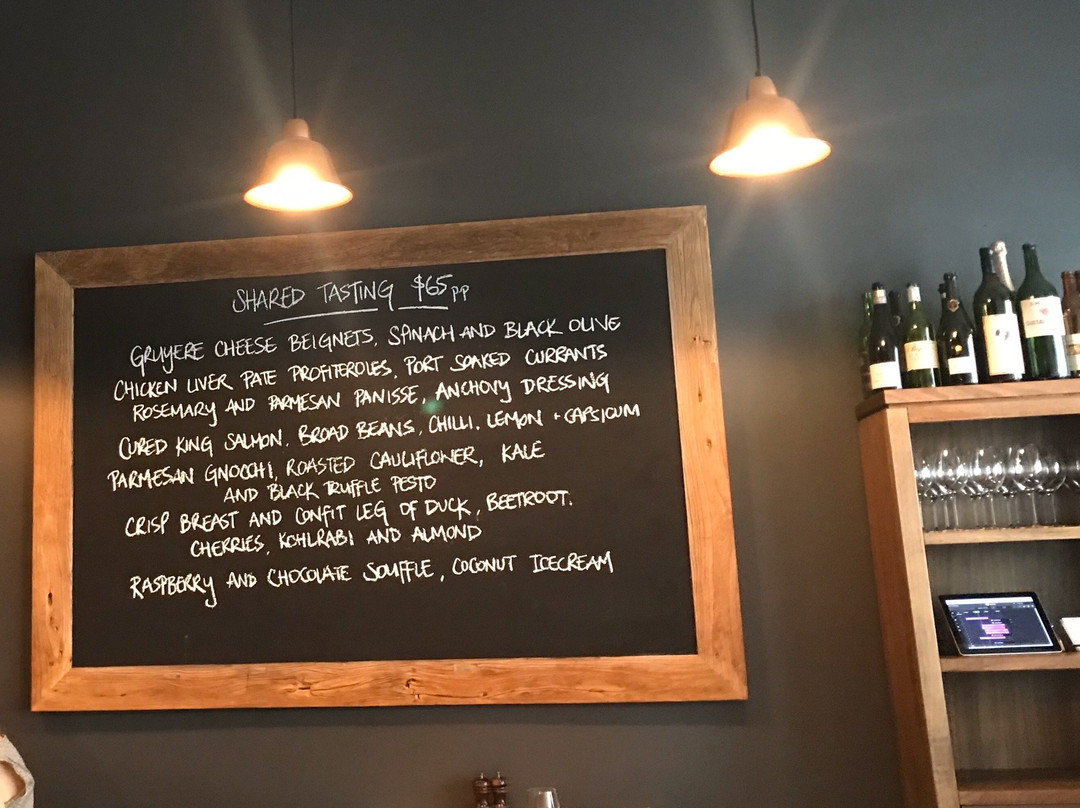 SHARED TASTING $65 PP
GRUYERE CHEESE BEIGNETS, SPINACH AND BLACK OLIVE
CHICKEN LIVER PATE PROFITEROLES, PORT SOAKED CURRANTS
ROSEMARY AND PARMESAN PANISSE, ANCHOVY DRESSING
CURED KING SALMON, BROAD BEANS, CHILLI, LEMON + CAPSICUM
PARMESAN GNOCCHI, ROASTED CAULIFLOWER, KALE
AND BLACK TRUFFLE PESTO
CRISP BREAST AND CONFIT LEG OF DUCK, BEETROOT.
CHERRIES, KOHLRABI AND ALMOND
RASPBERRY AND CHOCOLATE SOUFFLE, COCONUT ICECREAM